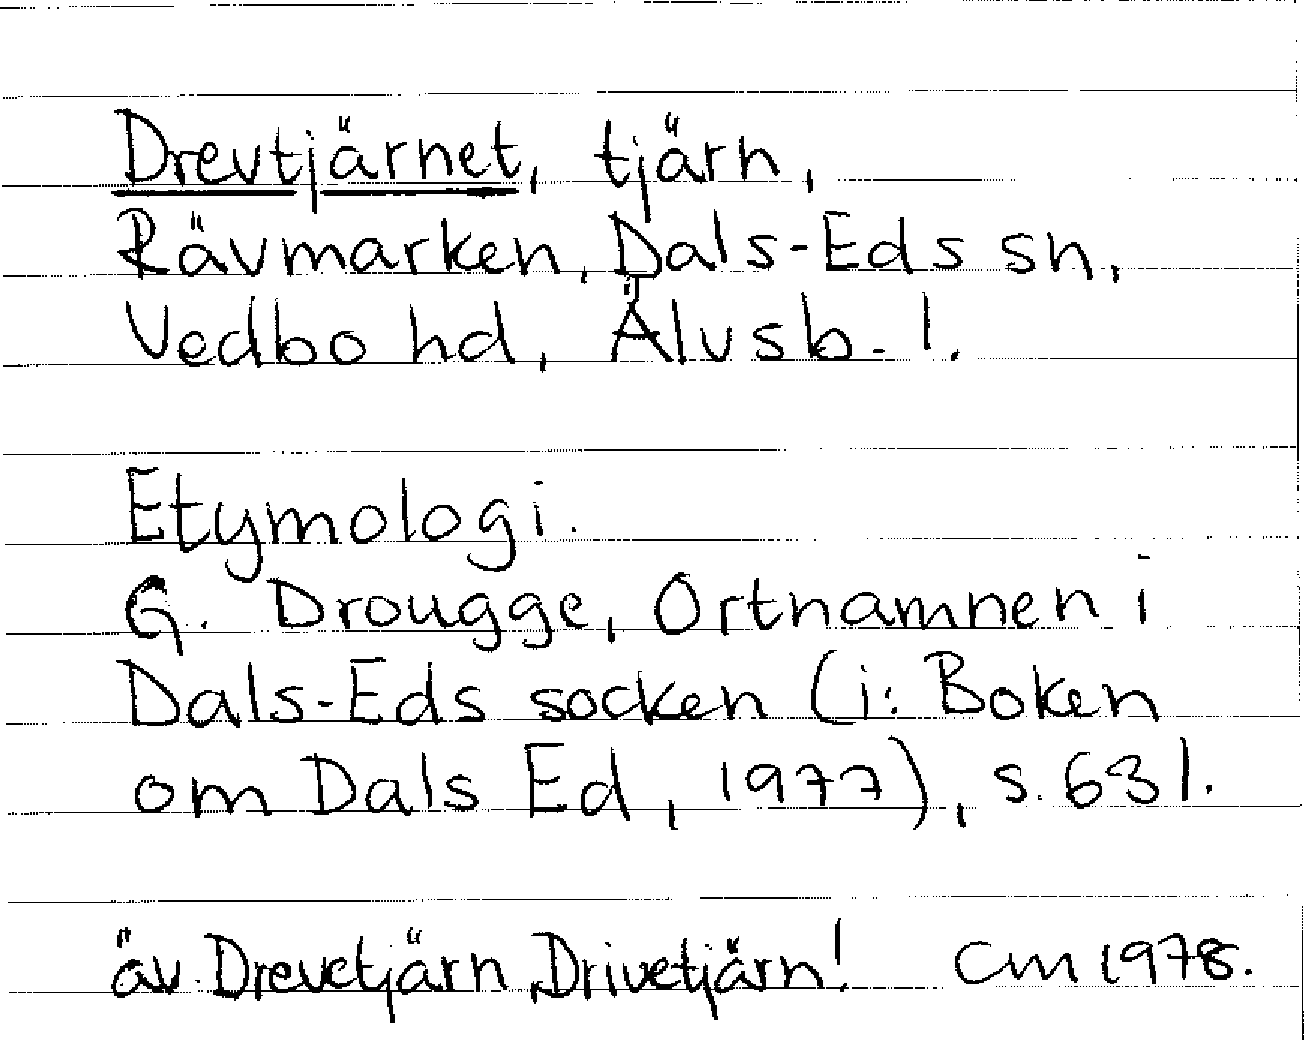 Drevtjärnet, tjärn,
Rävmarken, Dals-Eds sn,
Vedbo hd, Älvsb. l.
Etymologi.
G. Drougge, Ortnamnen i
Dals-Eds socken (i: Boken
om Dals Ed, 1977), s. 631.
äv. Drevetjärn, Drivetjärn! CM 1978.